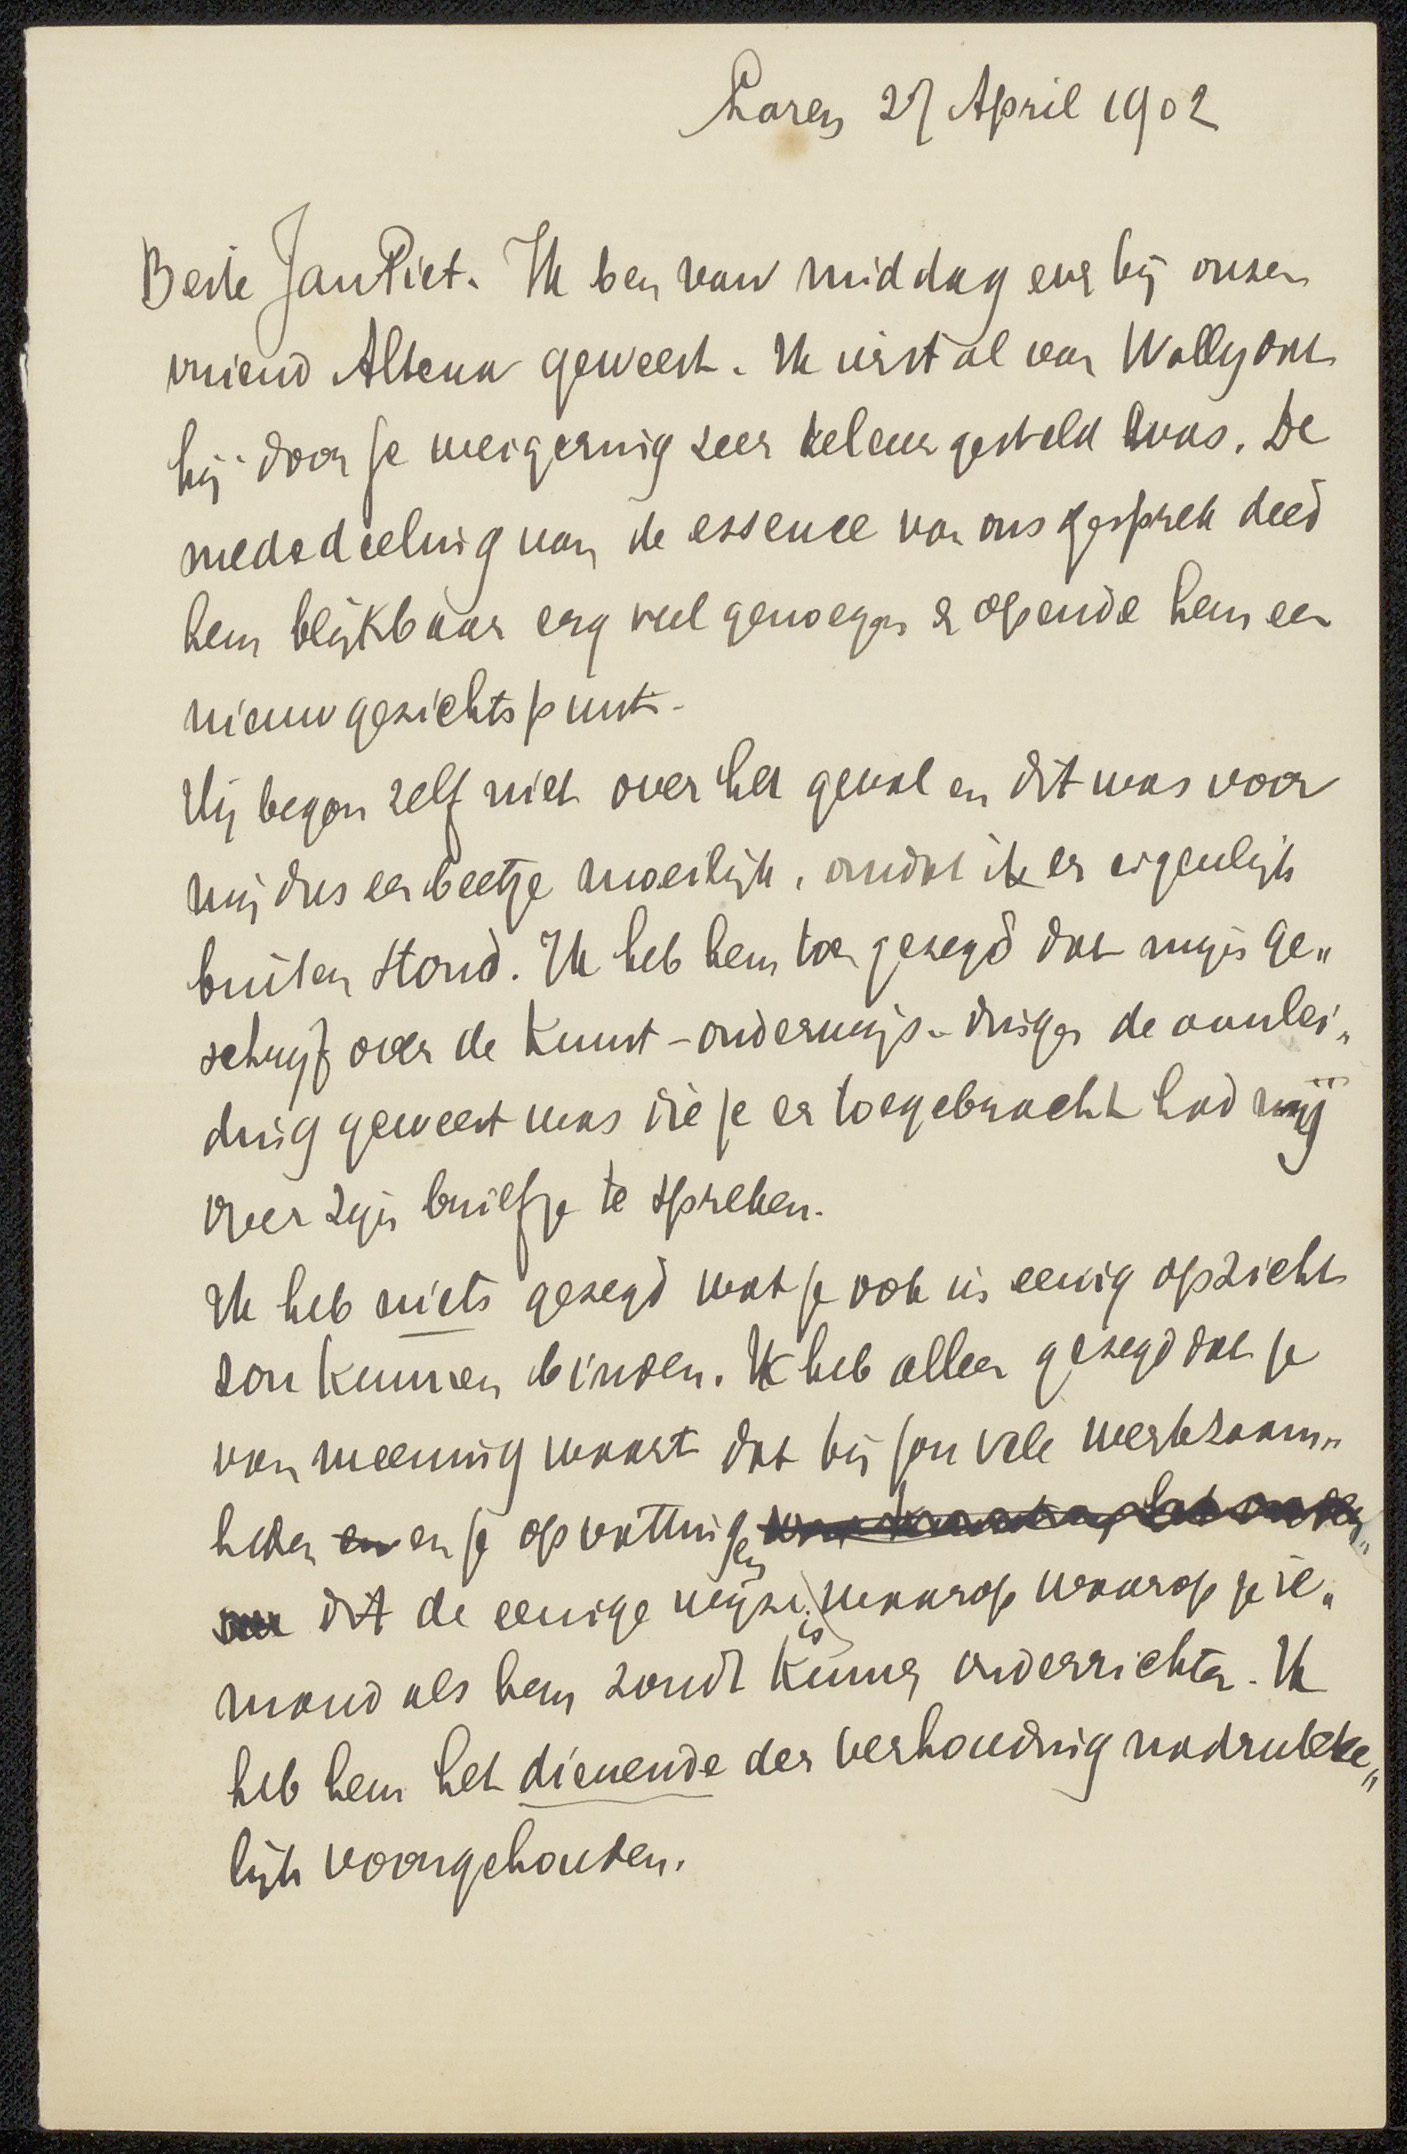 Laren 27 April 1902
Beste Jan Piet. Ik ben van middag even bij onzen
vriend Altena geweest. Ik wist al van Wally dat
hij door je weigering zeer teleurgesteld was. De
mededeeling van de essence van ons gesprek deed
hem blijkbaar erg veel genoegen & opende hem een
nieuw gezichtspunt.
Hij begon zelf niet over het geval en dit was voor
mij dus een beetje moeilijk, omdat ik er eigenlijk
buiten stond. Ik heb hem toen gezegd dat mijn ge„
schrijf over de Kunst-onderwijs-dingen de aanlei„
ding geweest was die je er toegebracht had mij
over zijn briefje te spreken.
Ik heb niets gezegd wat je ook in eenig opzicht
zou kunnen binden. Ik heb alleen gezegd dat je
van meening waart dat bij jou vele werkzaam„
heden en en je opvattingen
dit de eenige wijze is waarop waarop je ie„
mand als hem zoudt kunnen onderrichten. Ik
heb hem het dienende der verhouding nadrukke„
lijk voorgehouden.